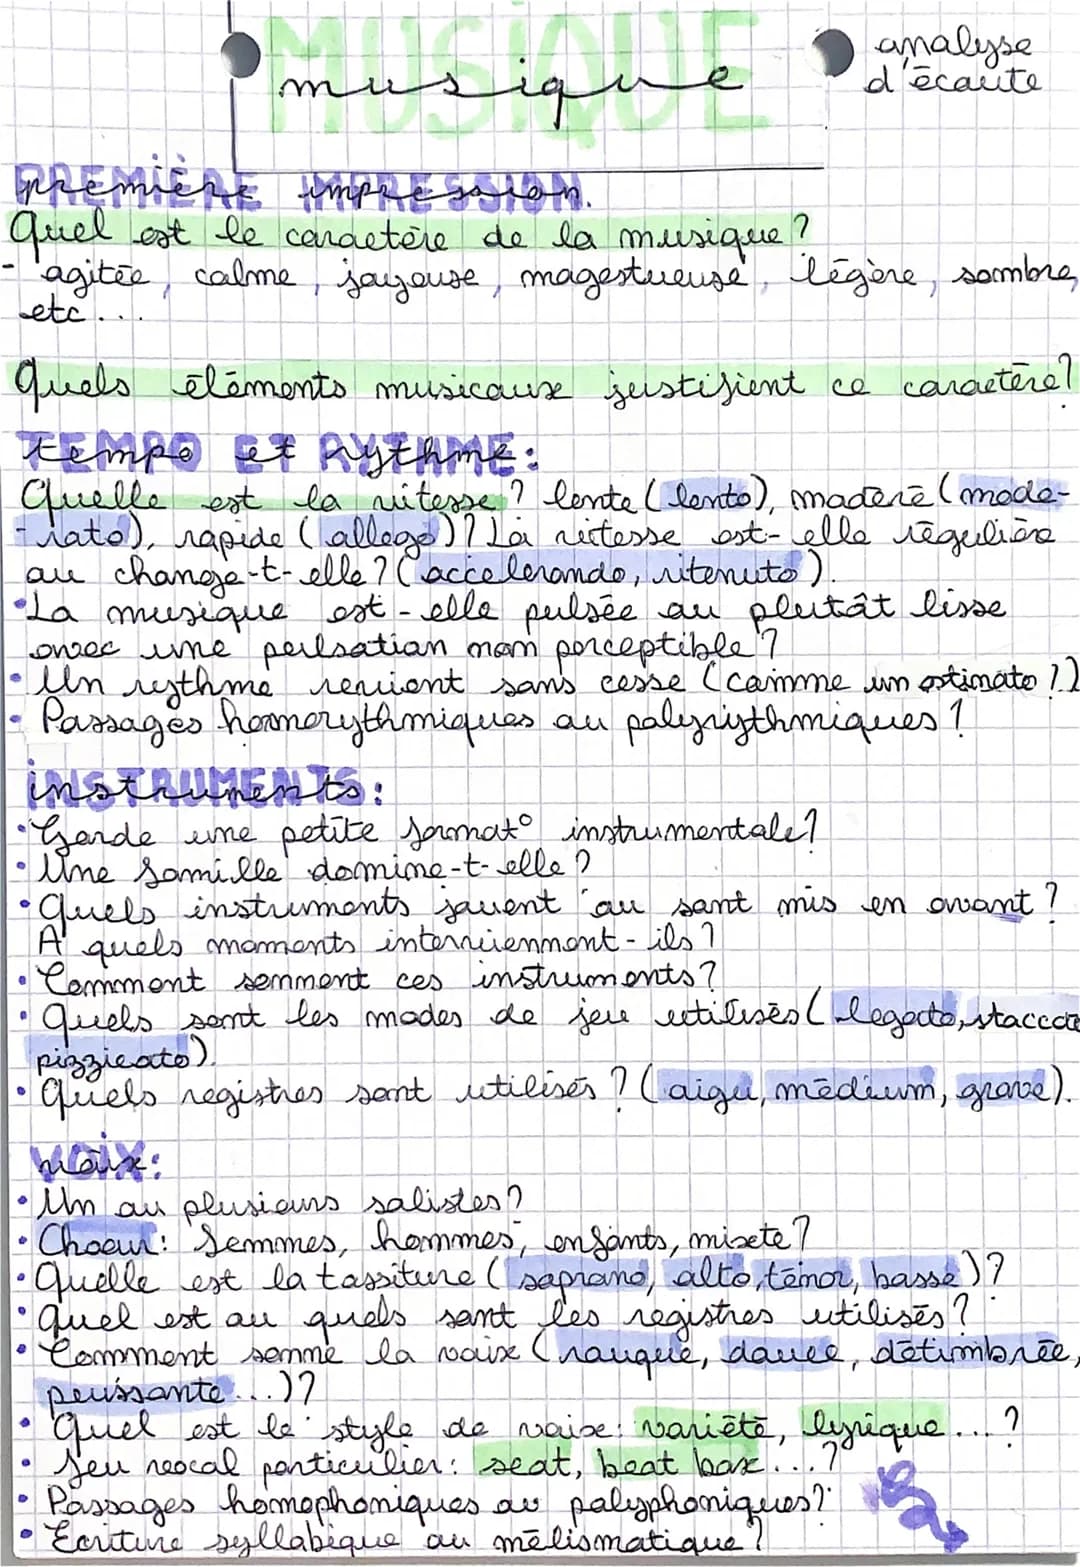 MUSIQUE
musique
analyse
d'écoute
PREMIÈRE IMPRESSION.
Quel est le caractère de la musique ?
- agitée, calme, joyeuse, magestueuse, légère, sombre,
etc...
Quels éléments musicaux justifient ce caractère?
TEMPO et RYthme:
Quelle est la vitesse ? lente (lento), modéré (mode-
-rato), rapide (allego)? La vitesse est-elle régulière
ou change-t-elle? (accelerando, ritenuto).
• La musique est-elle pulsée ou plutôt lisse
avec une pulsation non perceptible ?
• Un rythme revient sans cesse (comme un ostinato ?)
• Passages homorythmiques ou polyrythmiques ?
iNSTRUMENTS:
• Garde une petite format° instrumentale?
• Une famille domine-t-elle ?
• Quels instruments jouent ou sont mis en avant ?
A quels moments interviennent-ils ?
• Comment sonnent ces instruments ?
• Quels sont les modes de jeu utilisés (legato, staccato
pizzicato).
• Quels registres sont utilisés ? (aigu, médium, grave).
VOIX:
• Un ou plusieurs solistes ?
• Choeur: femmes, hommes, enfants, mixte ?
• Quelle est la tassiture (soprano, alto, ténor, basse)?
• Quel est ou quels sont les registres utilisés ?
• Comment sonne la voix (rauque, douce, détimbrée,
puissante...)?
• Quel est le style de voix: variété, lyrique... ?
• Jeu vocal particulier: scat, beat box...?
• Passages homophoniques ou polyphoniques?
• Ecriture syllabique ou mélismatique ?